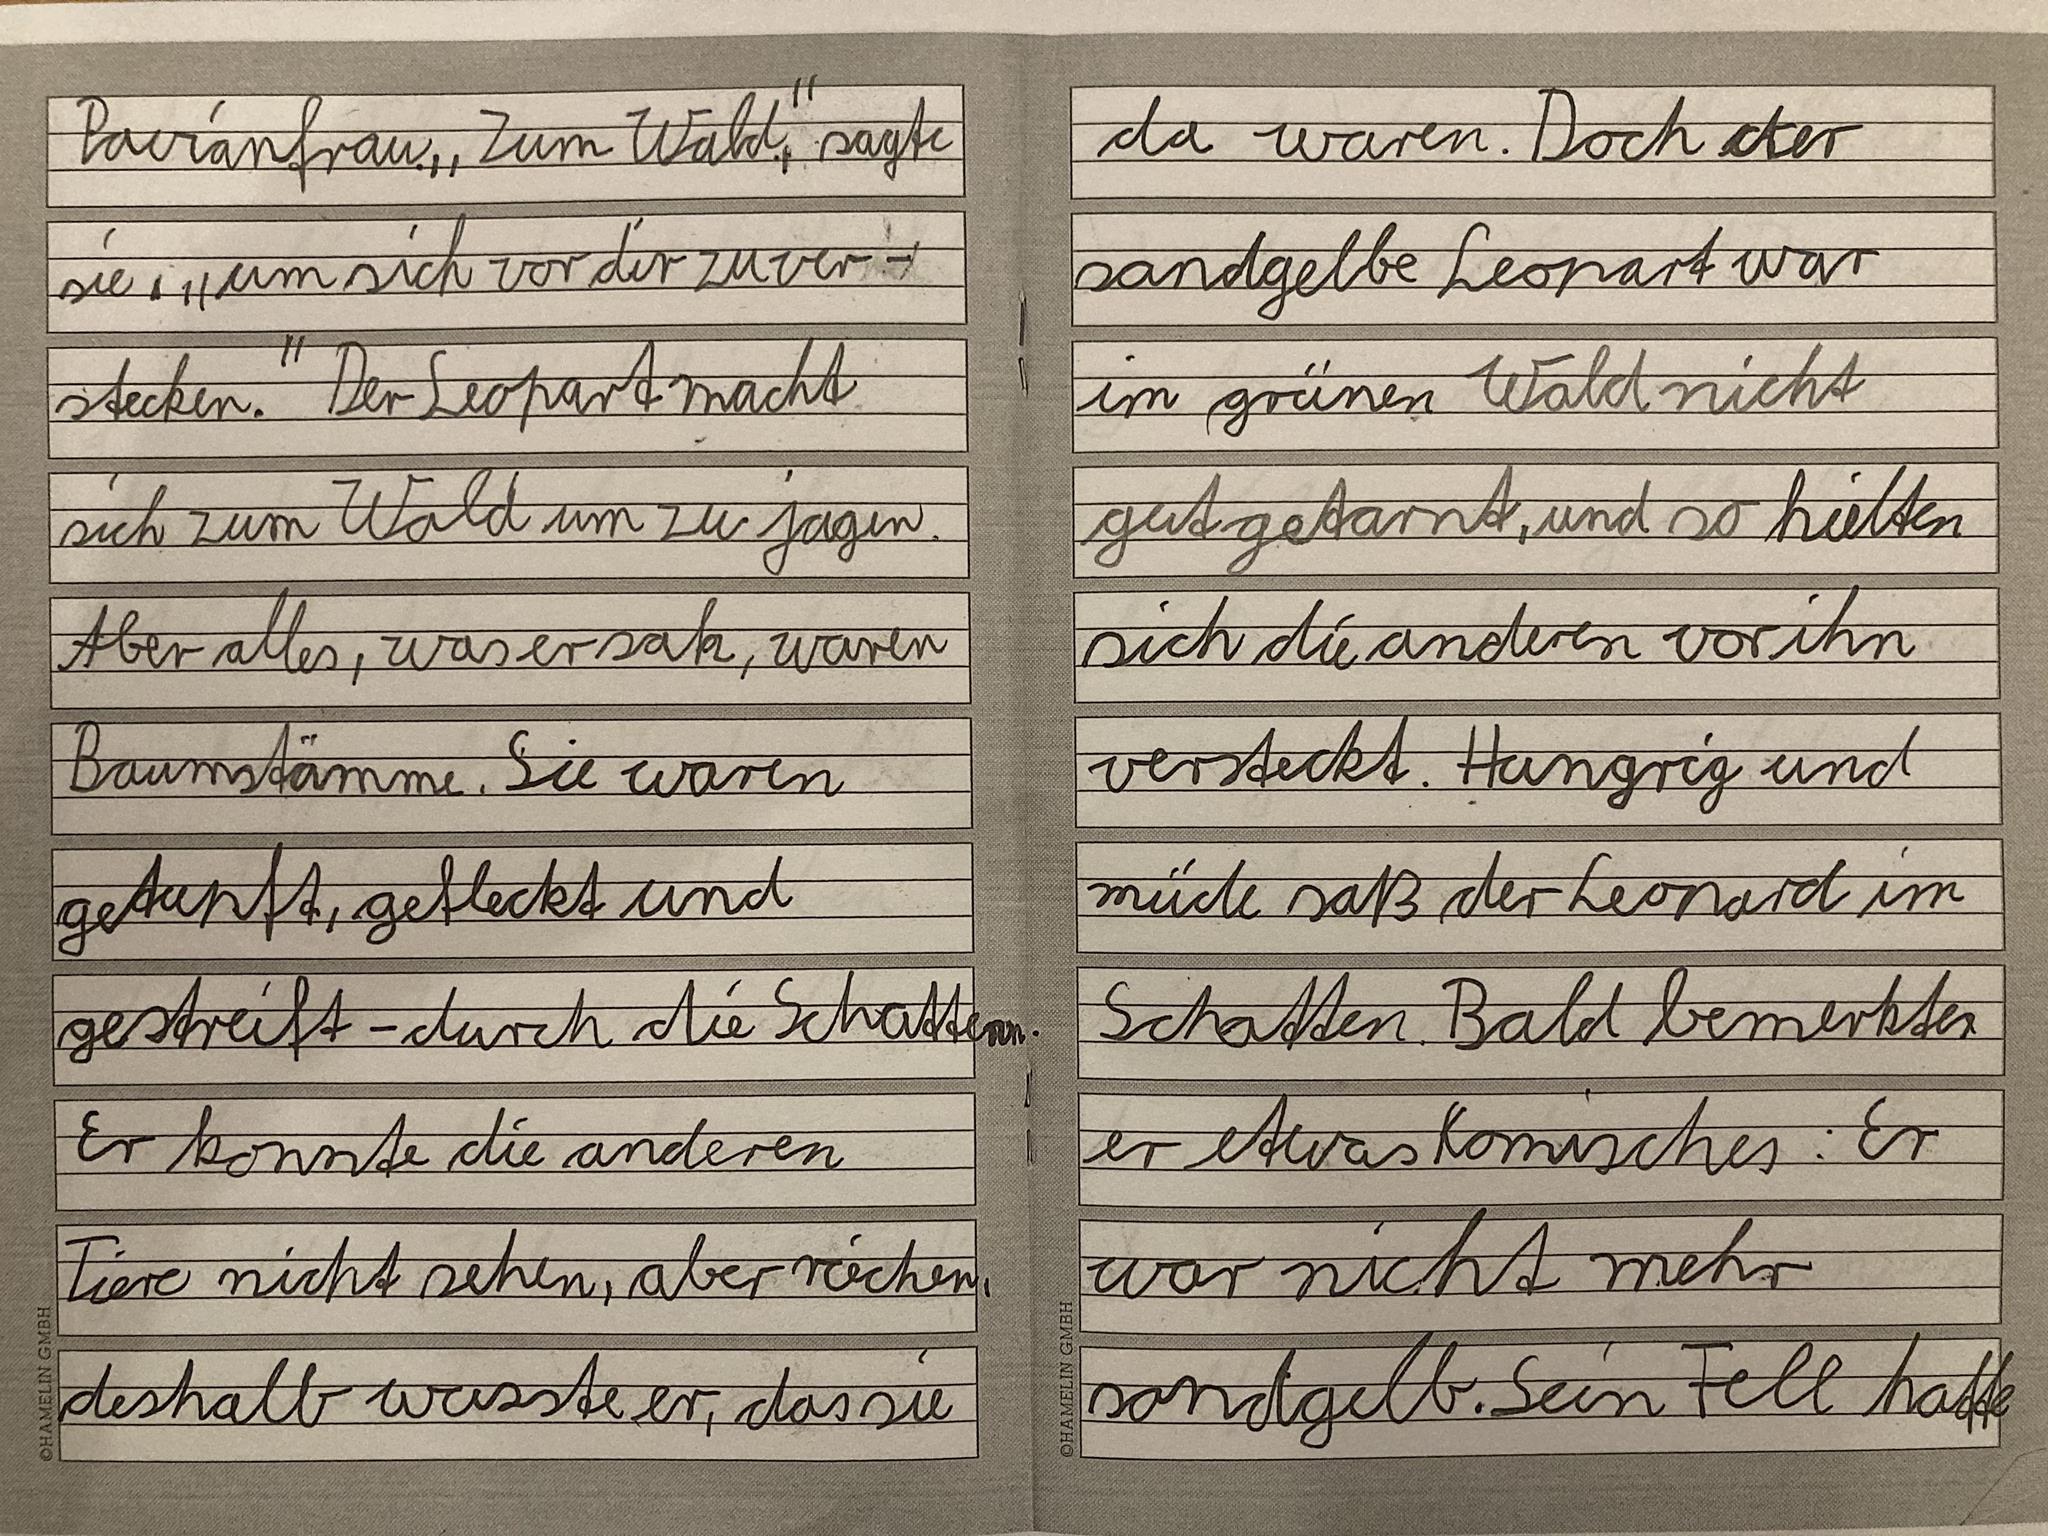 Pavianfrau. „Zum Wald," sagte
sie, „um sich vor dir zu ver-
stecken." Der Leopart macht
sich zum Wald um zu jagen.
Aber alles, was er sah, waren
Baumstämme. Sie waren
getupft, gefleckt und
gestreift - durch die Schatten.
Er konnte die anderen
Tiere nicht sehen, aber riechen,
deshalb wusste er, das sie
©HAMELIN GMBH
da waren. Doch der
sandgelbe Leopart war
im grünen Wald nicht
gut getarnt, und so hielten
sich die anderen vor ihn
versteckt. Hungrig und
müde saß der Leopard im
Schatten. Bald bemerkter
er etwas Komisches: Er
war nicht mehr
sandgelb. Sein Fell hatte
©HAMELIN GMBH